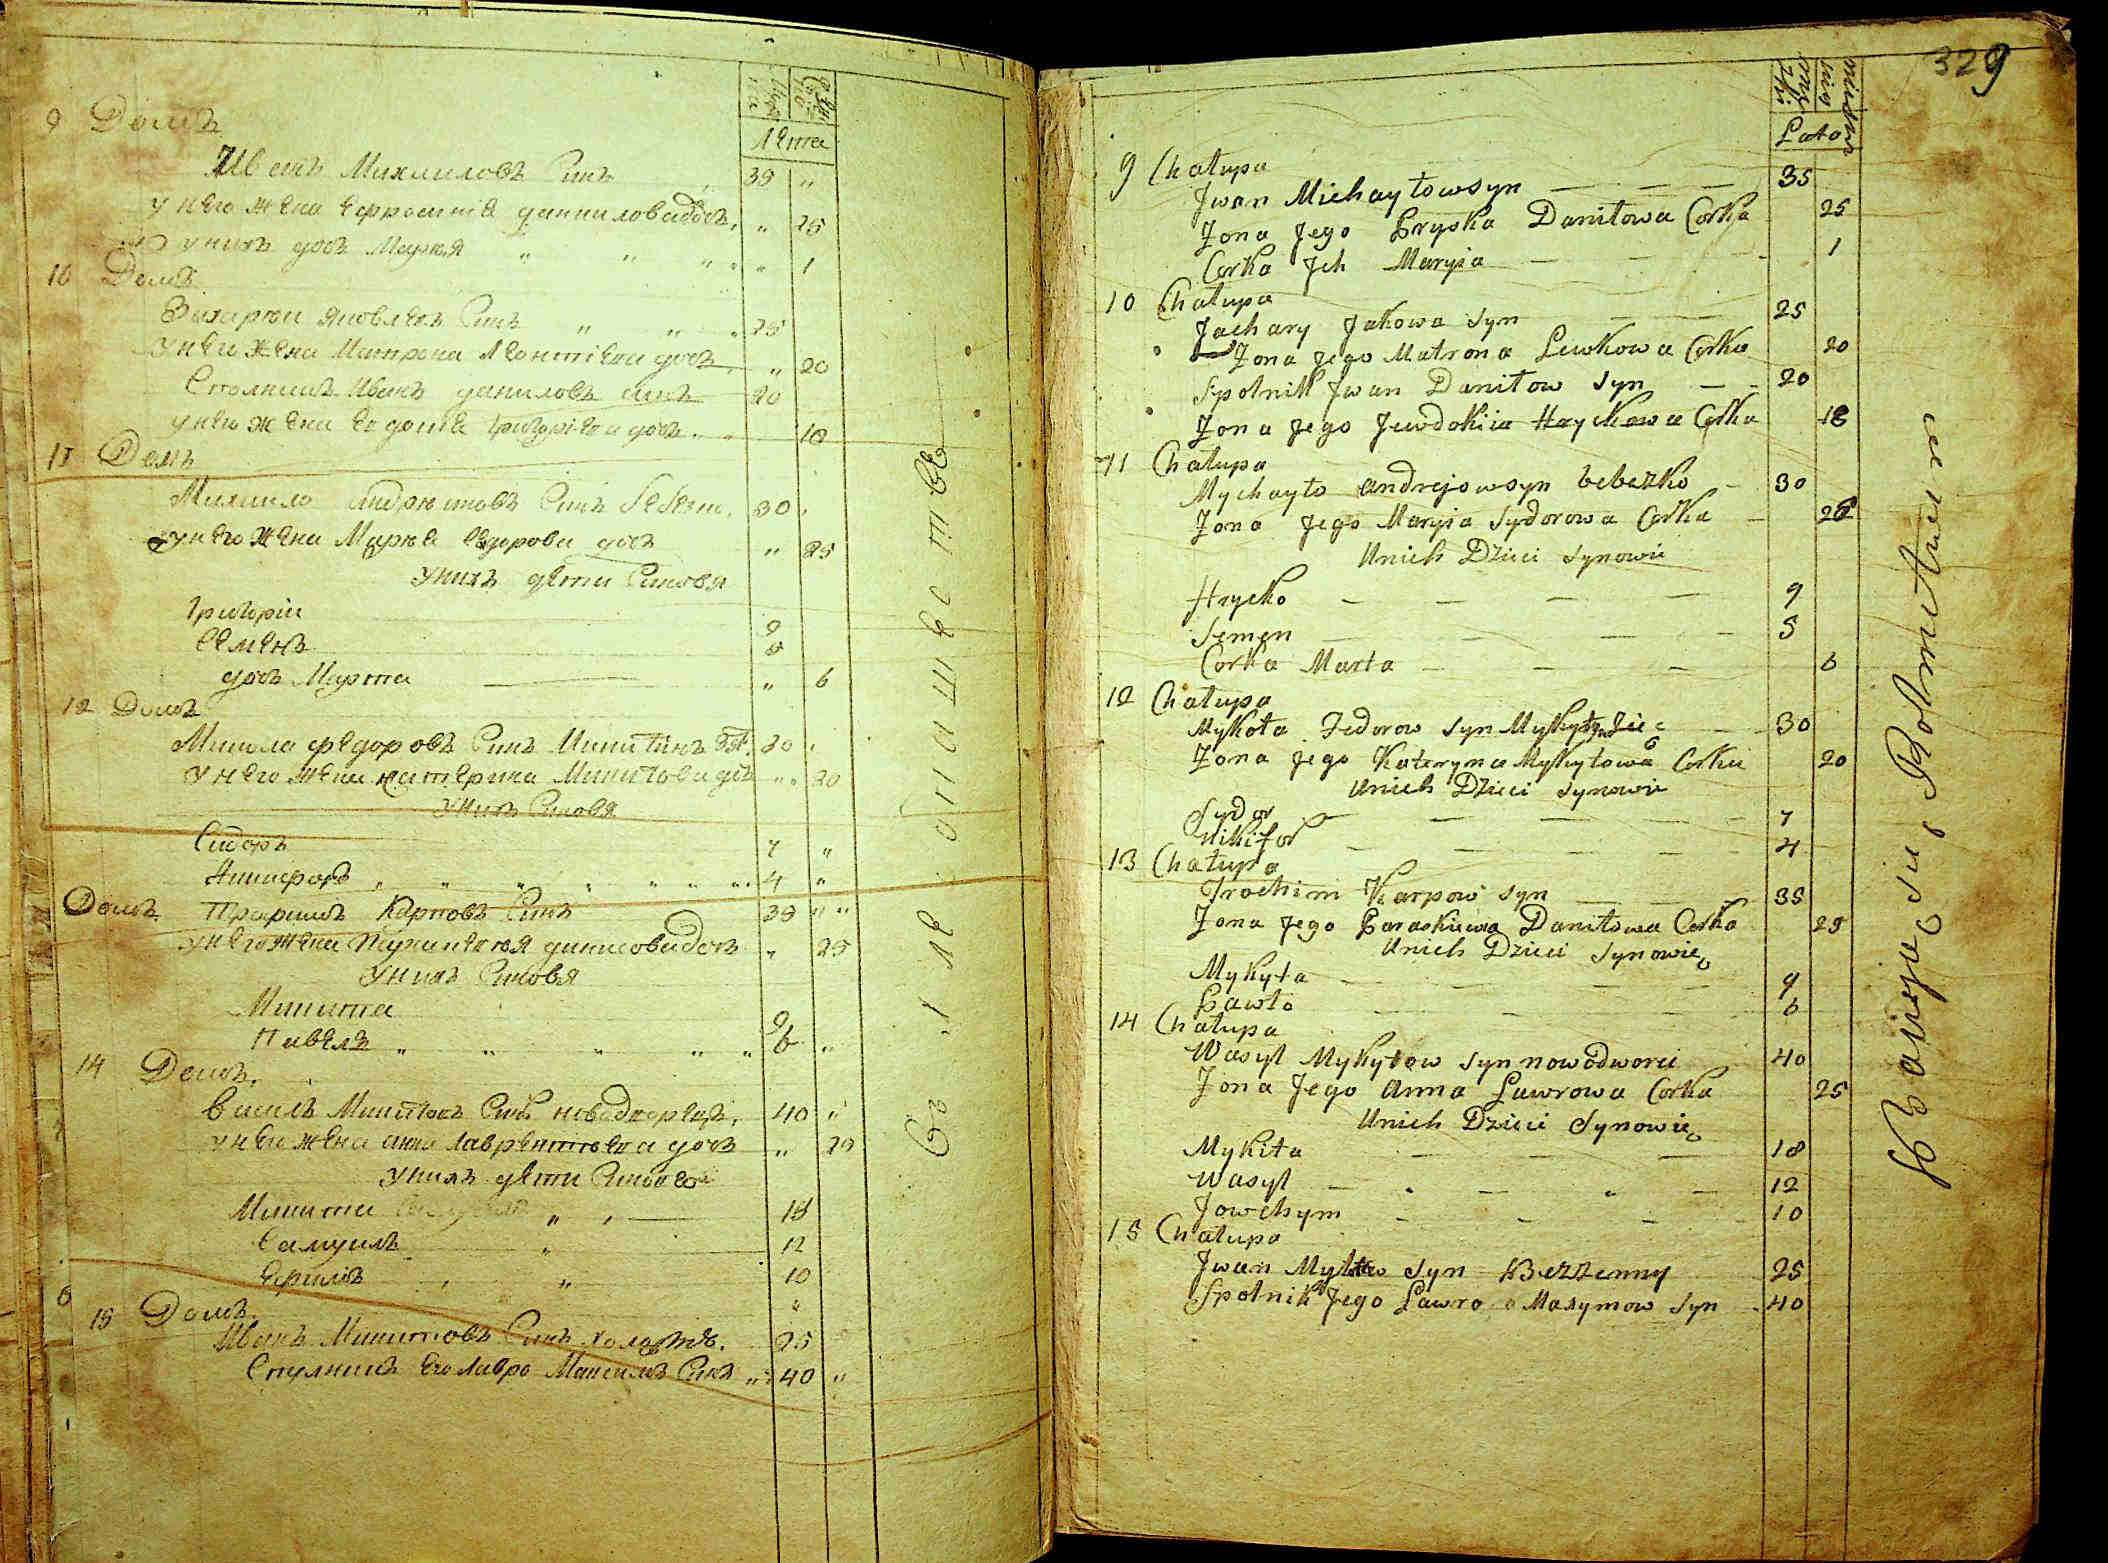 9 Домъ
Иванъ Михаиловъ Синъ 39 "
у него жена Ефросинія даниловадочь " 25
у нихъ дочь Мария " " " " 1
10 Домъ
Захарѣи Яковлевъ Синъ " " 25
у него жена Матрона Леонтіева дочь " 20
Сполникъ Иванъ даниловъ синъ 20
у него жена Евдокіа Григоріева дочь 18
11 Домъ
Михаило Андрѣиовъ Синъ 30
у него жена Марѣа Сидорова дочь " 25
У нихъ дѣти Синовя
Григоріи 9
Семенъ 5
дочь Марта " 6
12 Домъ
Микола Федоровъ Синъ 30
у него жена Катерина Микитова дочь " 20
У нихъ Синовя
Сидоръ 7 "
Никифоръ " " " " " " " 4 "
Домъ
Трофимъ Карповъ Синъ 39 " "
у него жена даниловадочь " 25
У нихъ Синовя
Микита 9
Павелъ " " " " " 6 "
14 Домъ
Василъ Микитовъ Синъ 40 "
у него жена анна Лаврентіева дочь " 29
У нихъ дѣти Синове
Микита " 18
Самуилъ " 12
Ефимъ " 10
15 Домъ
Иванъ Микитовъ Синъ 25
Сполникъ его Лавро Максимовъ Синъ " 40 "
Лѣта
329
Lata
9 Chałupa
Jwan Michayłowsyn 35
Zona Jego Pryska Daniłowa Corka 25
Corka Jch Maryia 1
10 Chałupa
Zachary Jakowa syn 25
Zona Jego Matrona Lewkowa Corka 20
Spolnik Jwan Daniłow syn 20
Zona Jego Jewdokiia Hryckowa Corka 18
11 Chałupa
Mychayło Andrejowsyn bebeszko 30
Zona Jego Maryia Sydorowa Corka 25
Unich Dzieci Synowie
Hrycko 9
Semen 5
Corka Marta 6
12 Chałupa
Mykoła Fedorow syn 30
Zona Jego Kateryna Mykytowa Corka 20
Unich Dzieci Synowie
Sydor 7
Nikifor 4
13 Chałupa
Trochim Karpow syn 35
Zona Jego Paraskiewia Daniłowa Corka 25
Unich Dzieci Synowie
Mykyta 9
Pawło 6
14 Chałupa
Wasyl Mykytow syn nowodworci 40
Zona Jego Anna Lawrowa Corka 25
Unich Dzieci Synowie
Mykita 18
Wasyl 12
Jowchym 10
15 Chałupa
Jwan syn Bezzenny 25
Spolnik Jego Lawro Maxymow syn 40